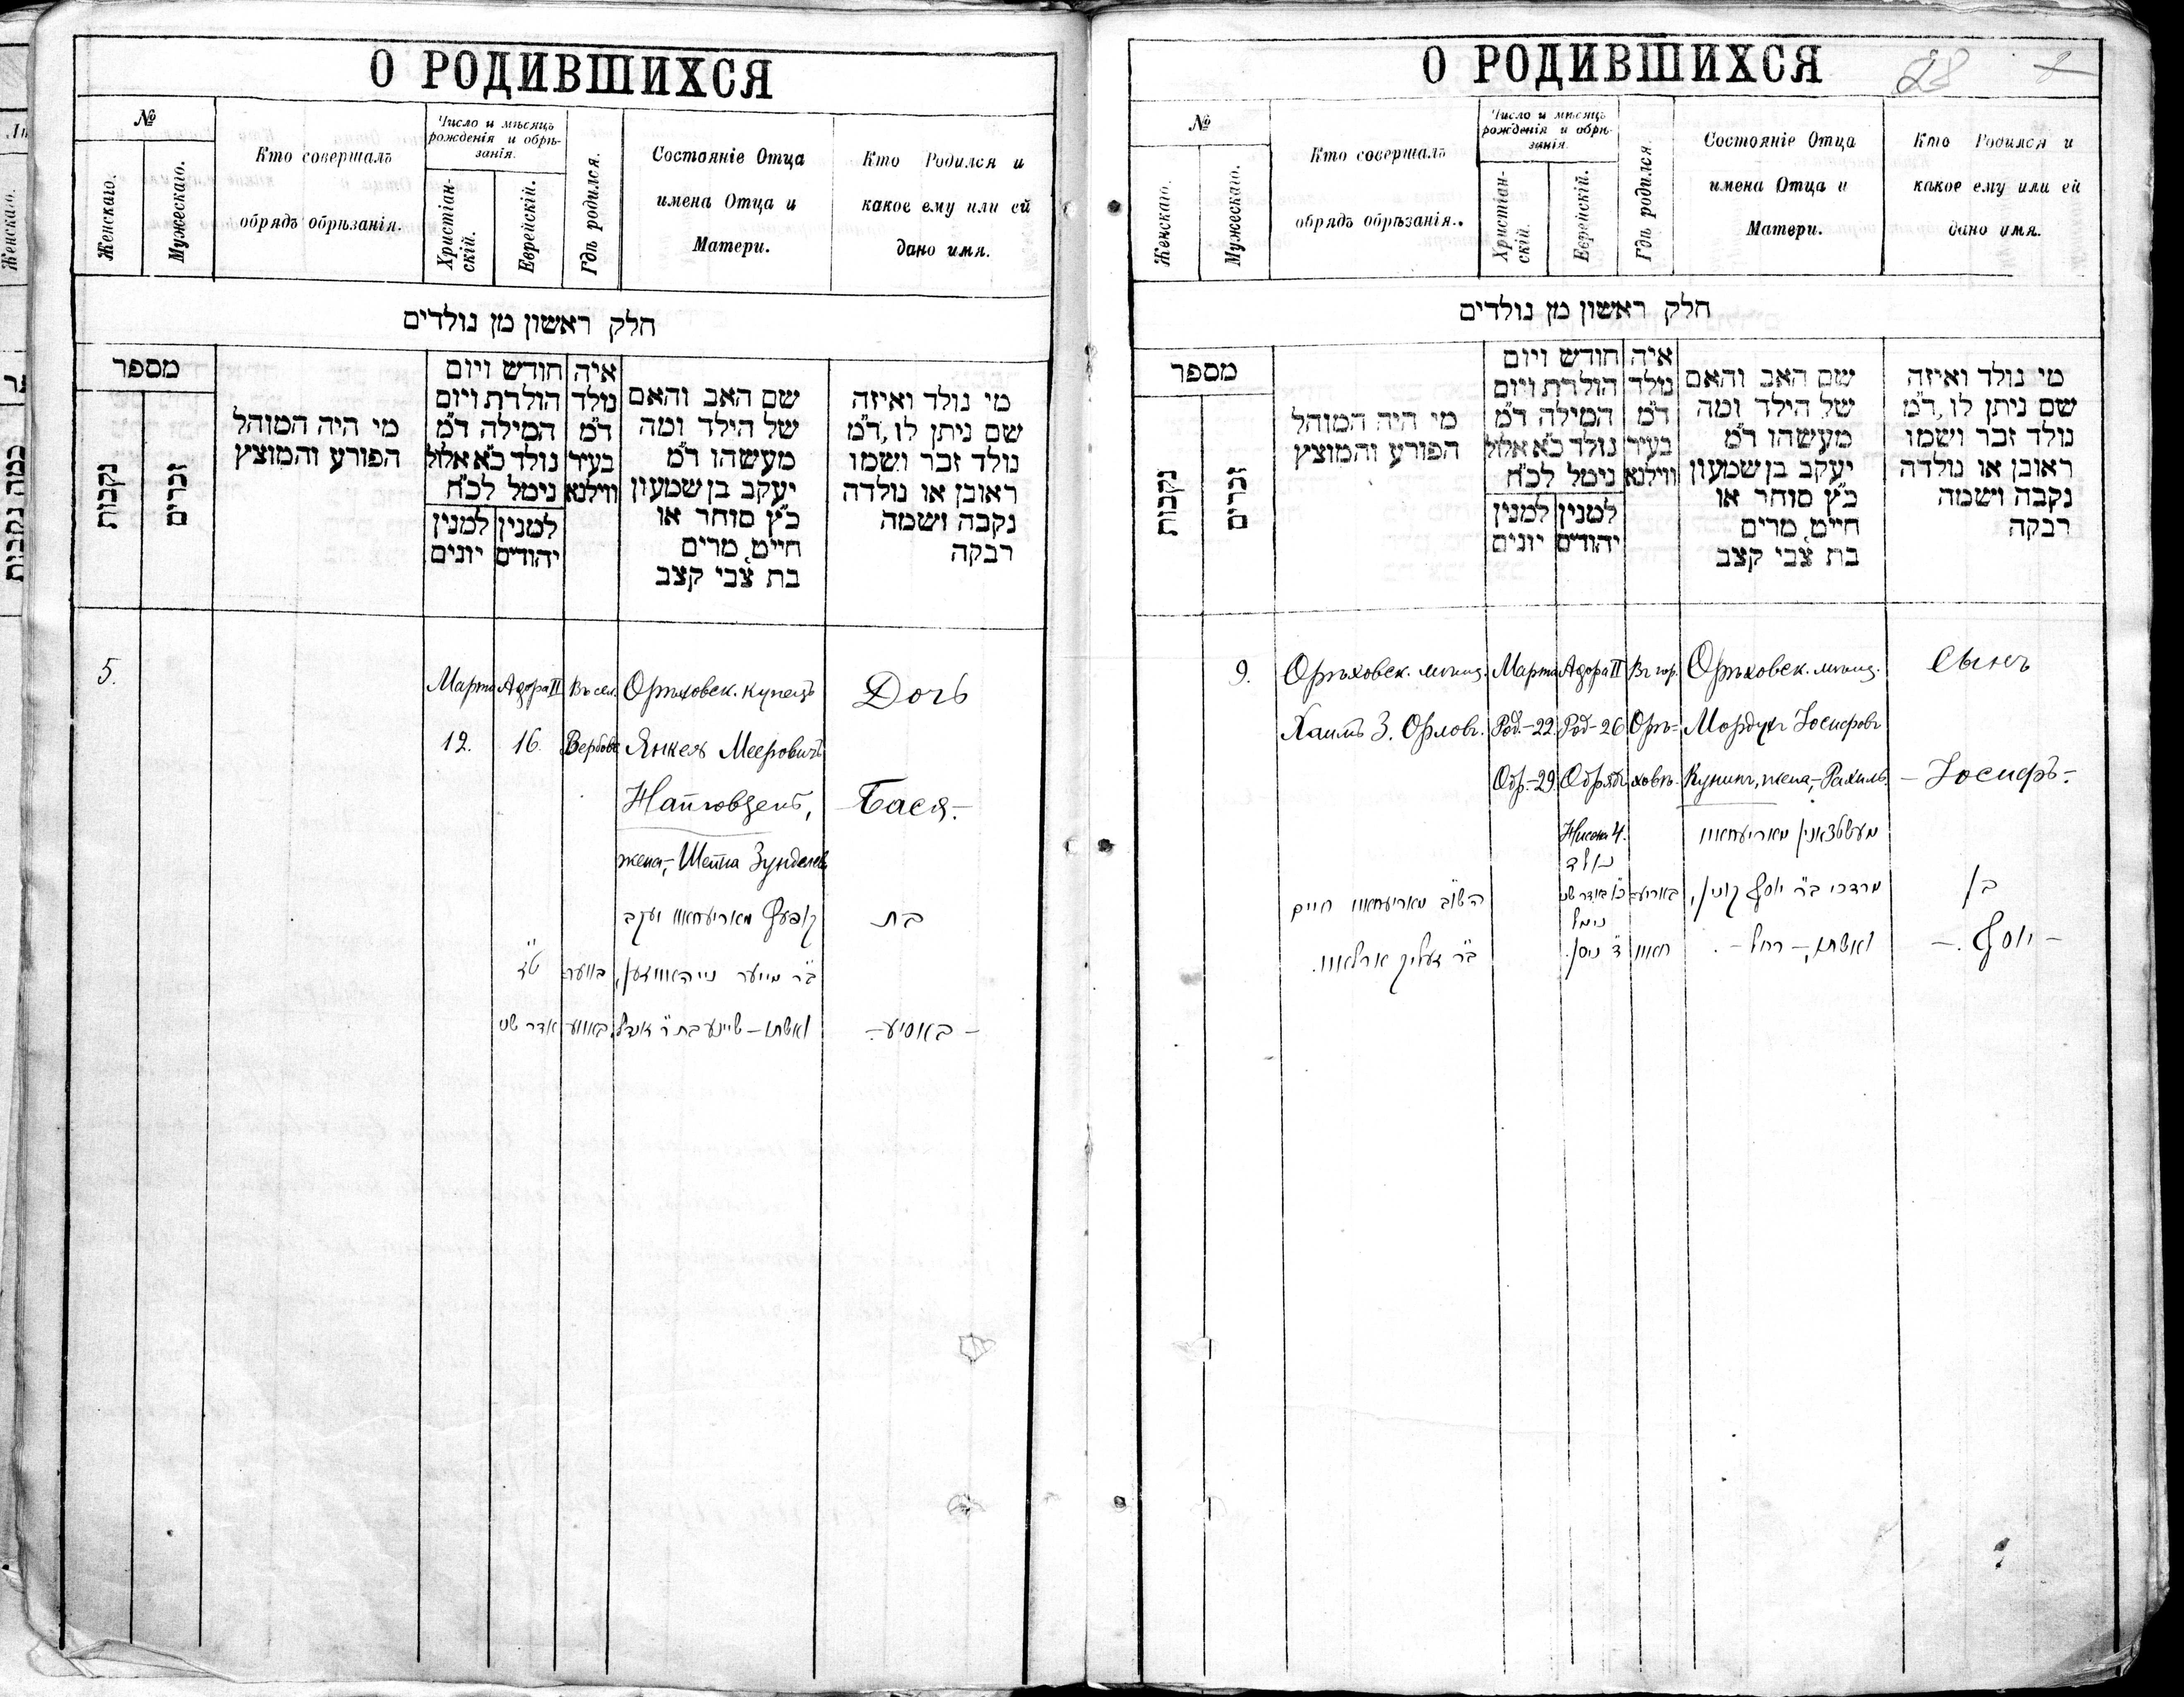 О РОДИВШИХСЯ
№
Женскаго.
Мужескаго.
Кто совершалъ
обрядъ обрѣзанія.
Число и мѣсяцъ
рожденія и обрѣ-
занія.
Христіан-
скій.
Еврейскій.
Гдѣ родился.
Состояніе Отца
имена Отца и
Матери.
Кто Родился и
какое ему или ей
дано имя.
חלק ראשון מן נולדים
מספר
נקבות
זכרים
מי היה המוהל
הפורע והמוצץ
חודש ויום
הולדת ויום
המילה ד״מ
נולד כ״א אלול
נימל לכ״ח
למנין
יונים
למנין
יהודים
איה
נולד
ד״מ
בעיר
ווילנא
שם האב והאם
של הילד ומה
מעשהו ד״מ
יעקב בן שמעון
כ״ץ סוחר או
חייט, מרים
בת צבי קצב
מי נולד ואיזה
שם ניתן לו, ד״מ
נולד זכר ושמו
ראובן או נולדה
נקבה ושמה
רבקה
5.
Марта
12.
Адора II
16.
Въ сел.
Орѣховск. купецъ
Янкель Мееровичъ
жена,-Шейна
Дочь
Бася.-
ט״ז
אדר שני
יעקב
ב״ר מייער
ואשתו - שיינע בת ר׳
בת
- באסיע -
О РОДИВШИХСЯ
28
№
Женскаго.
Мужескаго.
Кто совершалъ
обрядъ обрѣзанія..
Число и мѣсяцъ
рожденія и обрѣ-
занія.
Христіан-
скій.
Еврейскій.
Гдѣ родился.
Состояніе Отца
имена Отца и
Матери.
Кто Родился и
какое ему или ей
дано имя.
חלק ראשון מן נולדים
מספר
נקבות
זכרים
מי היה המוהל
הפורע והמוצץ
חודש ויום
הולדת ויום
המילה ד״מ
נולד כ״א אלול
נימל לכ״ח
למנין
יונים
למנין
יהודים
איה
נולד
ד״מ
בעיר
ווילנא
שם האב והאם
של הילד ומה
מעשהו ד״מ
יעקב בן שמעון
כ״ץ סוחר או
חייט, מרים
בת צבי קצב
מי נולד ואיזה
שם ניתן לו, ד״מ
נולד זכר ושמו
ראובן או נולדה
נקבה ושמה
רבקה
9.
Орѣховск. мѣщ.
Хаимъ З. Орловъ.
Марта
Род.-22.
Обр.-29.
Адора II
Род-26
Обряд.
Нисона 4.
Въ гор.
Орѣ-
ховѣ.
Орѣховск. мѣщ.
Мордухъ Іосифовъ
Кунинъ, жена,-Рахиль.
Сынъ
- Іосифъ.-
חיים
נולד
נימל
ד׳ ניסן.
מרדכי ב״ר יוסף קונין,
ואשתו, - רחל -.
בן
- יוסף. -